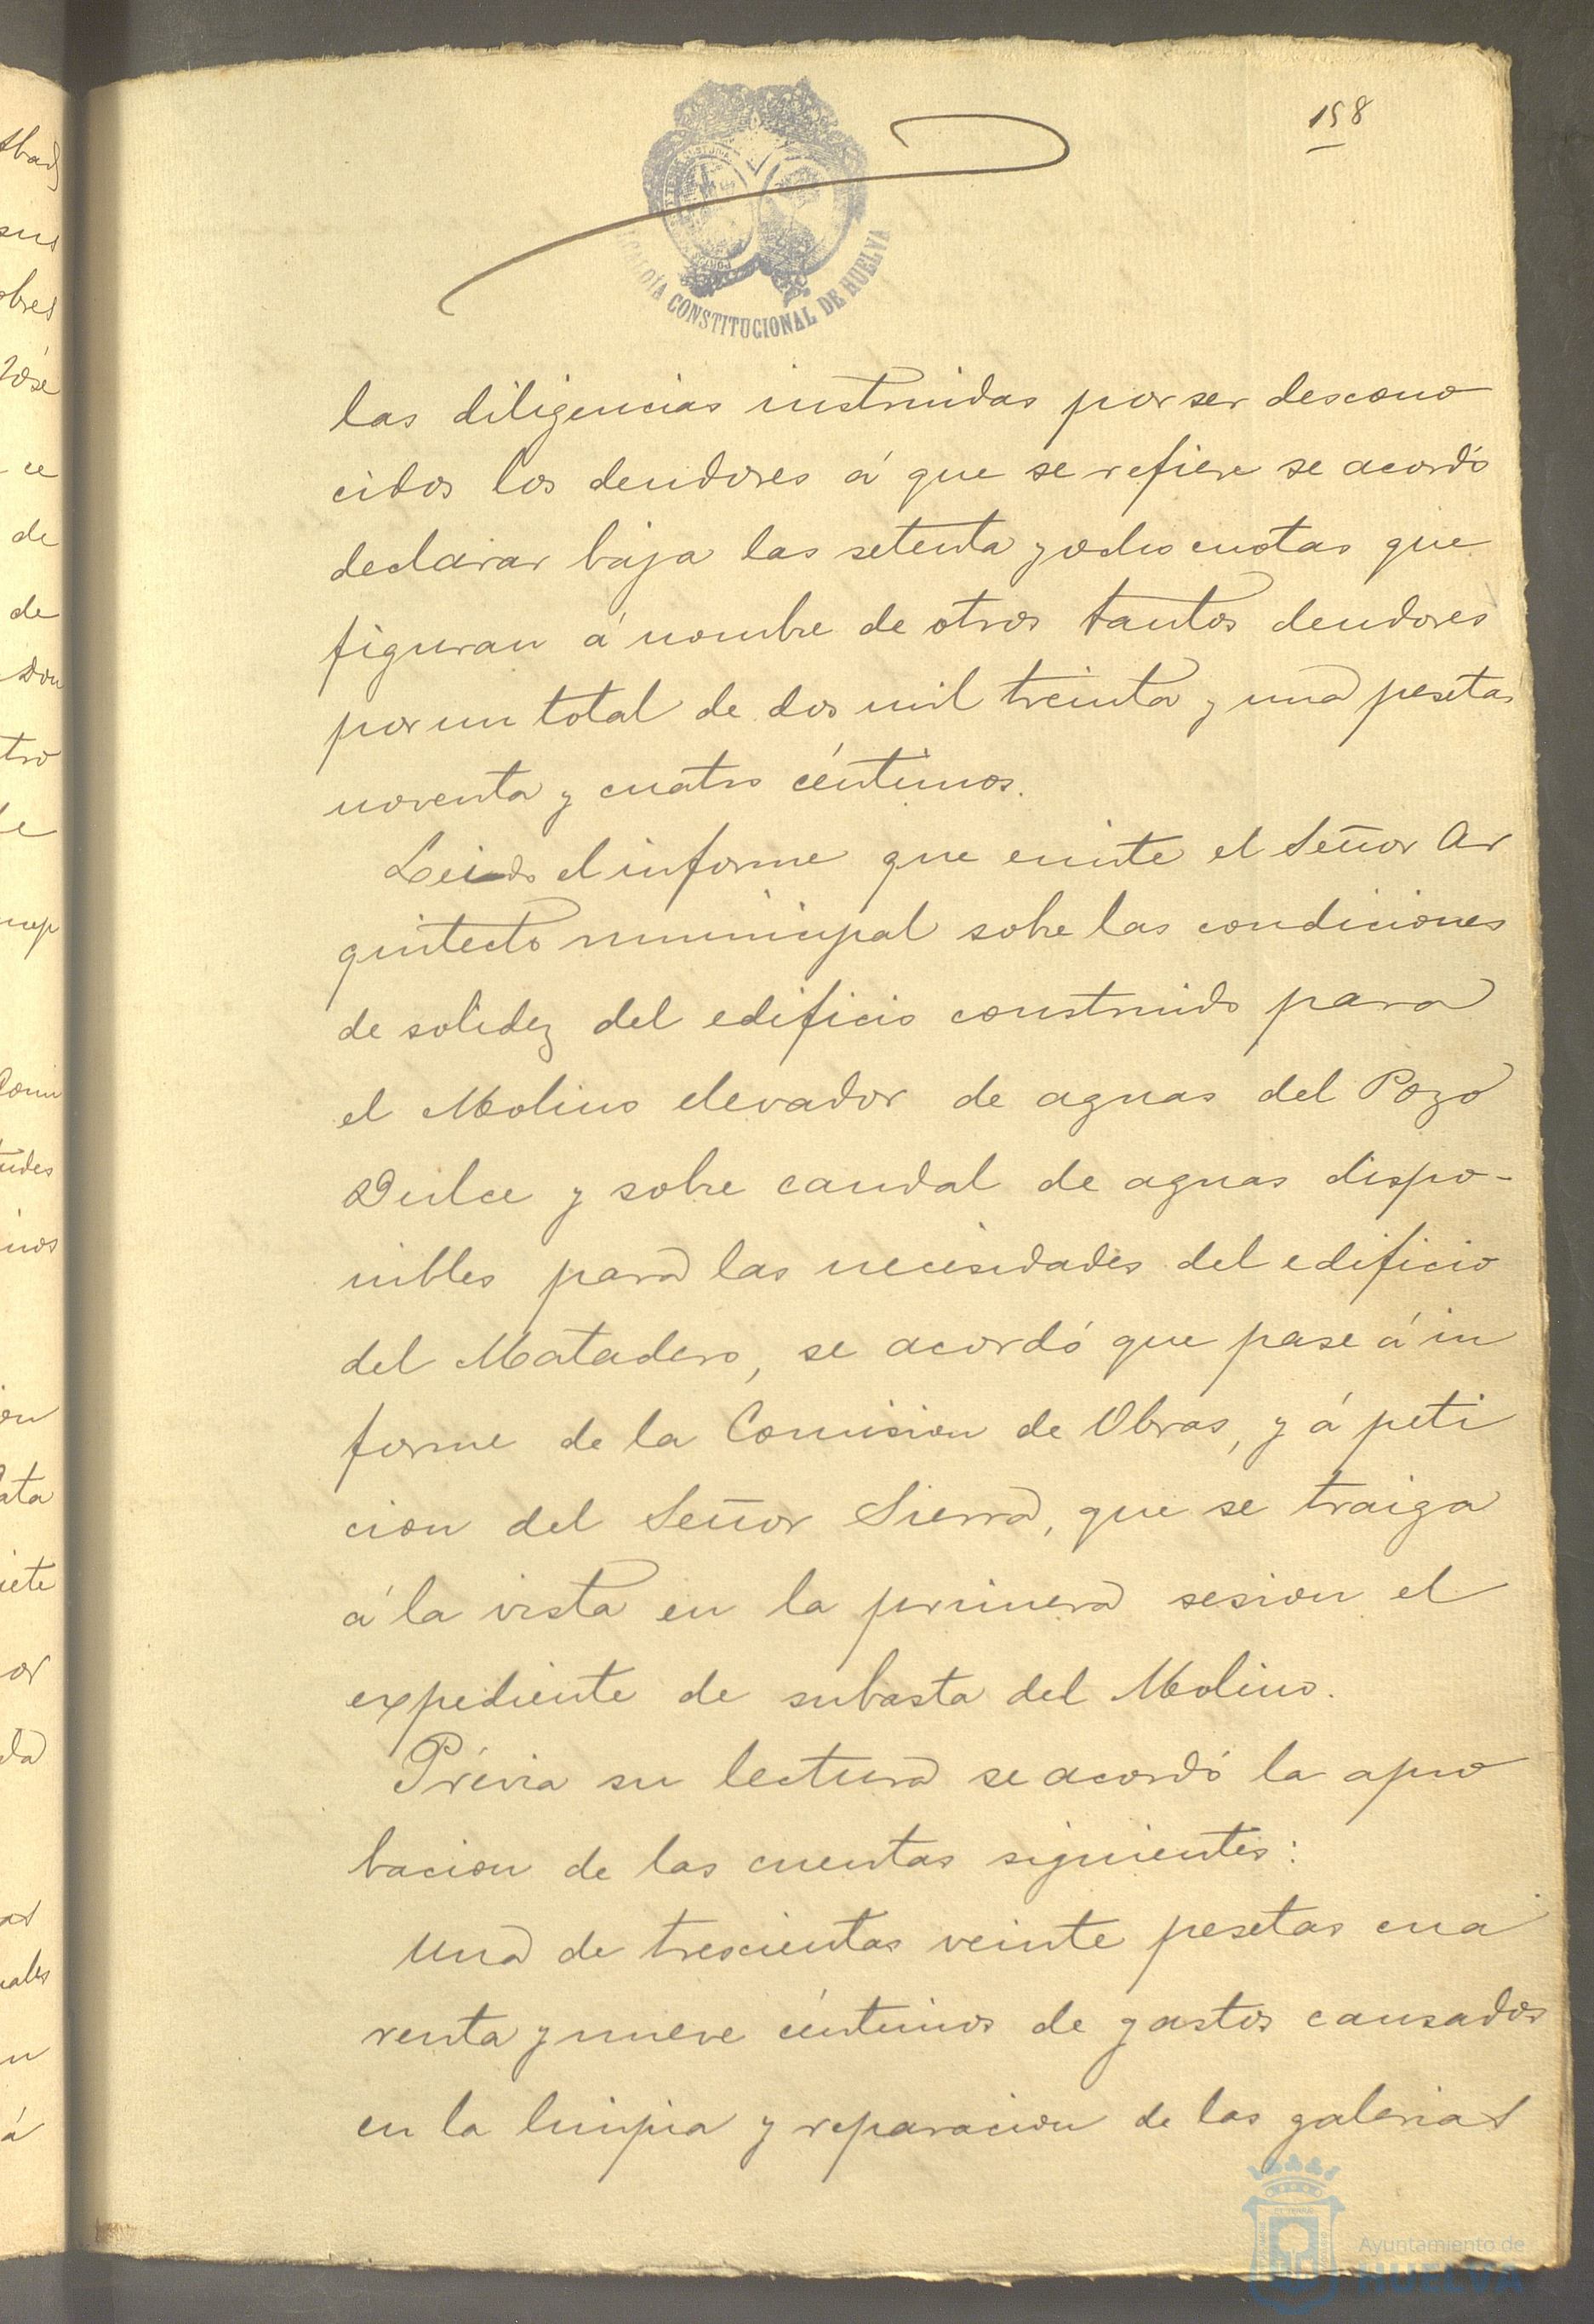 158
ALCALDÍA CONSTITUCIONAL DE HUELVA
las diligencias instruidas por ser descono
cidos los deudores á que se refiere se acordó
declarar baja las setenta y ocho cuotas que
figuran á nombre de otros tantos deudores
por un total de dos mil treinta y una pesetas
noventa y cuatro céntimos.
Leido el informe que emite el Señor Ar
quitecto municipal sobre las condiciones
de solidez del edificio construido para
el Molino elevador de aguas del Pozo
Dulce y sobre caudal de aguas dispo-
nibles para las necesidades del edificio
del Matadero, se acordó que pase á in
forme de la Comision de Obras, y á peti
cion del Señor Sierra, que se traiga
á la vista en la primera sesion el
expediente de subasta del Molino.
Prévia su lectura se acordó la apro
bacion de las cuentas siguientes:
Una de trescientas veinte pesetas cua
renta y nueve céntimos de gastos causados
en la limpia y reparacion de las galerias
Ayuntamiento de
HUELVA